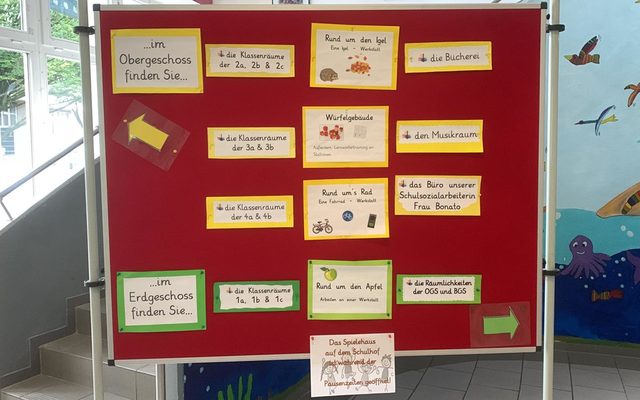 ...im
Obergeschoss
finden Sie...
die Klassenräume
der 2a, 2b & 2c
Rund um den Igel
Eine Igel - Werkstatt
die Bücherei
die Klassenräume
der 3a & 3b
Würfelgebäude
Außerdem: Lernwörtertraining an
Stationen
den Musikraum
die Klassenräume
der 4a & 4b
Rund um's Rad
Eine Fahrrad - Werkstatt
das Büro unserer
Schulsozialarbeiterin
Frau Bonato
...im
Erdgeschoss
finden Sie...
die Klassenräume
1a, 1b & 1c
Rund um den Apfel
Arbeiten an einer Werkstatt
die Räumlichkeiten
der OGS und BGS
Das Spielehaus
auf dem Schulhof
ist während der
Pausenzeiten geöffnet!